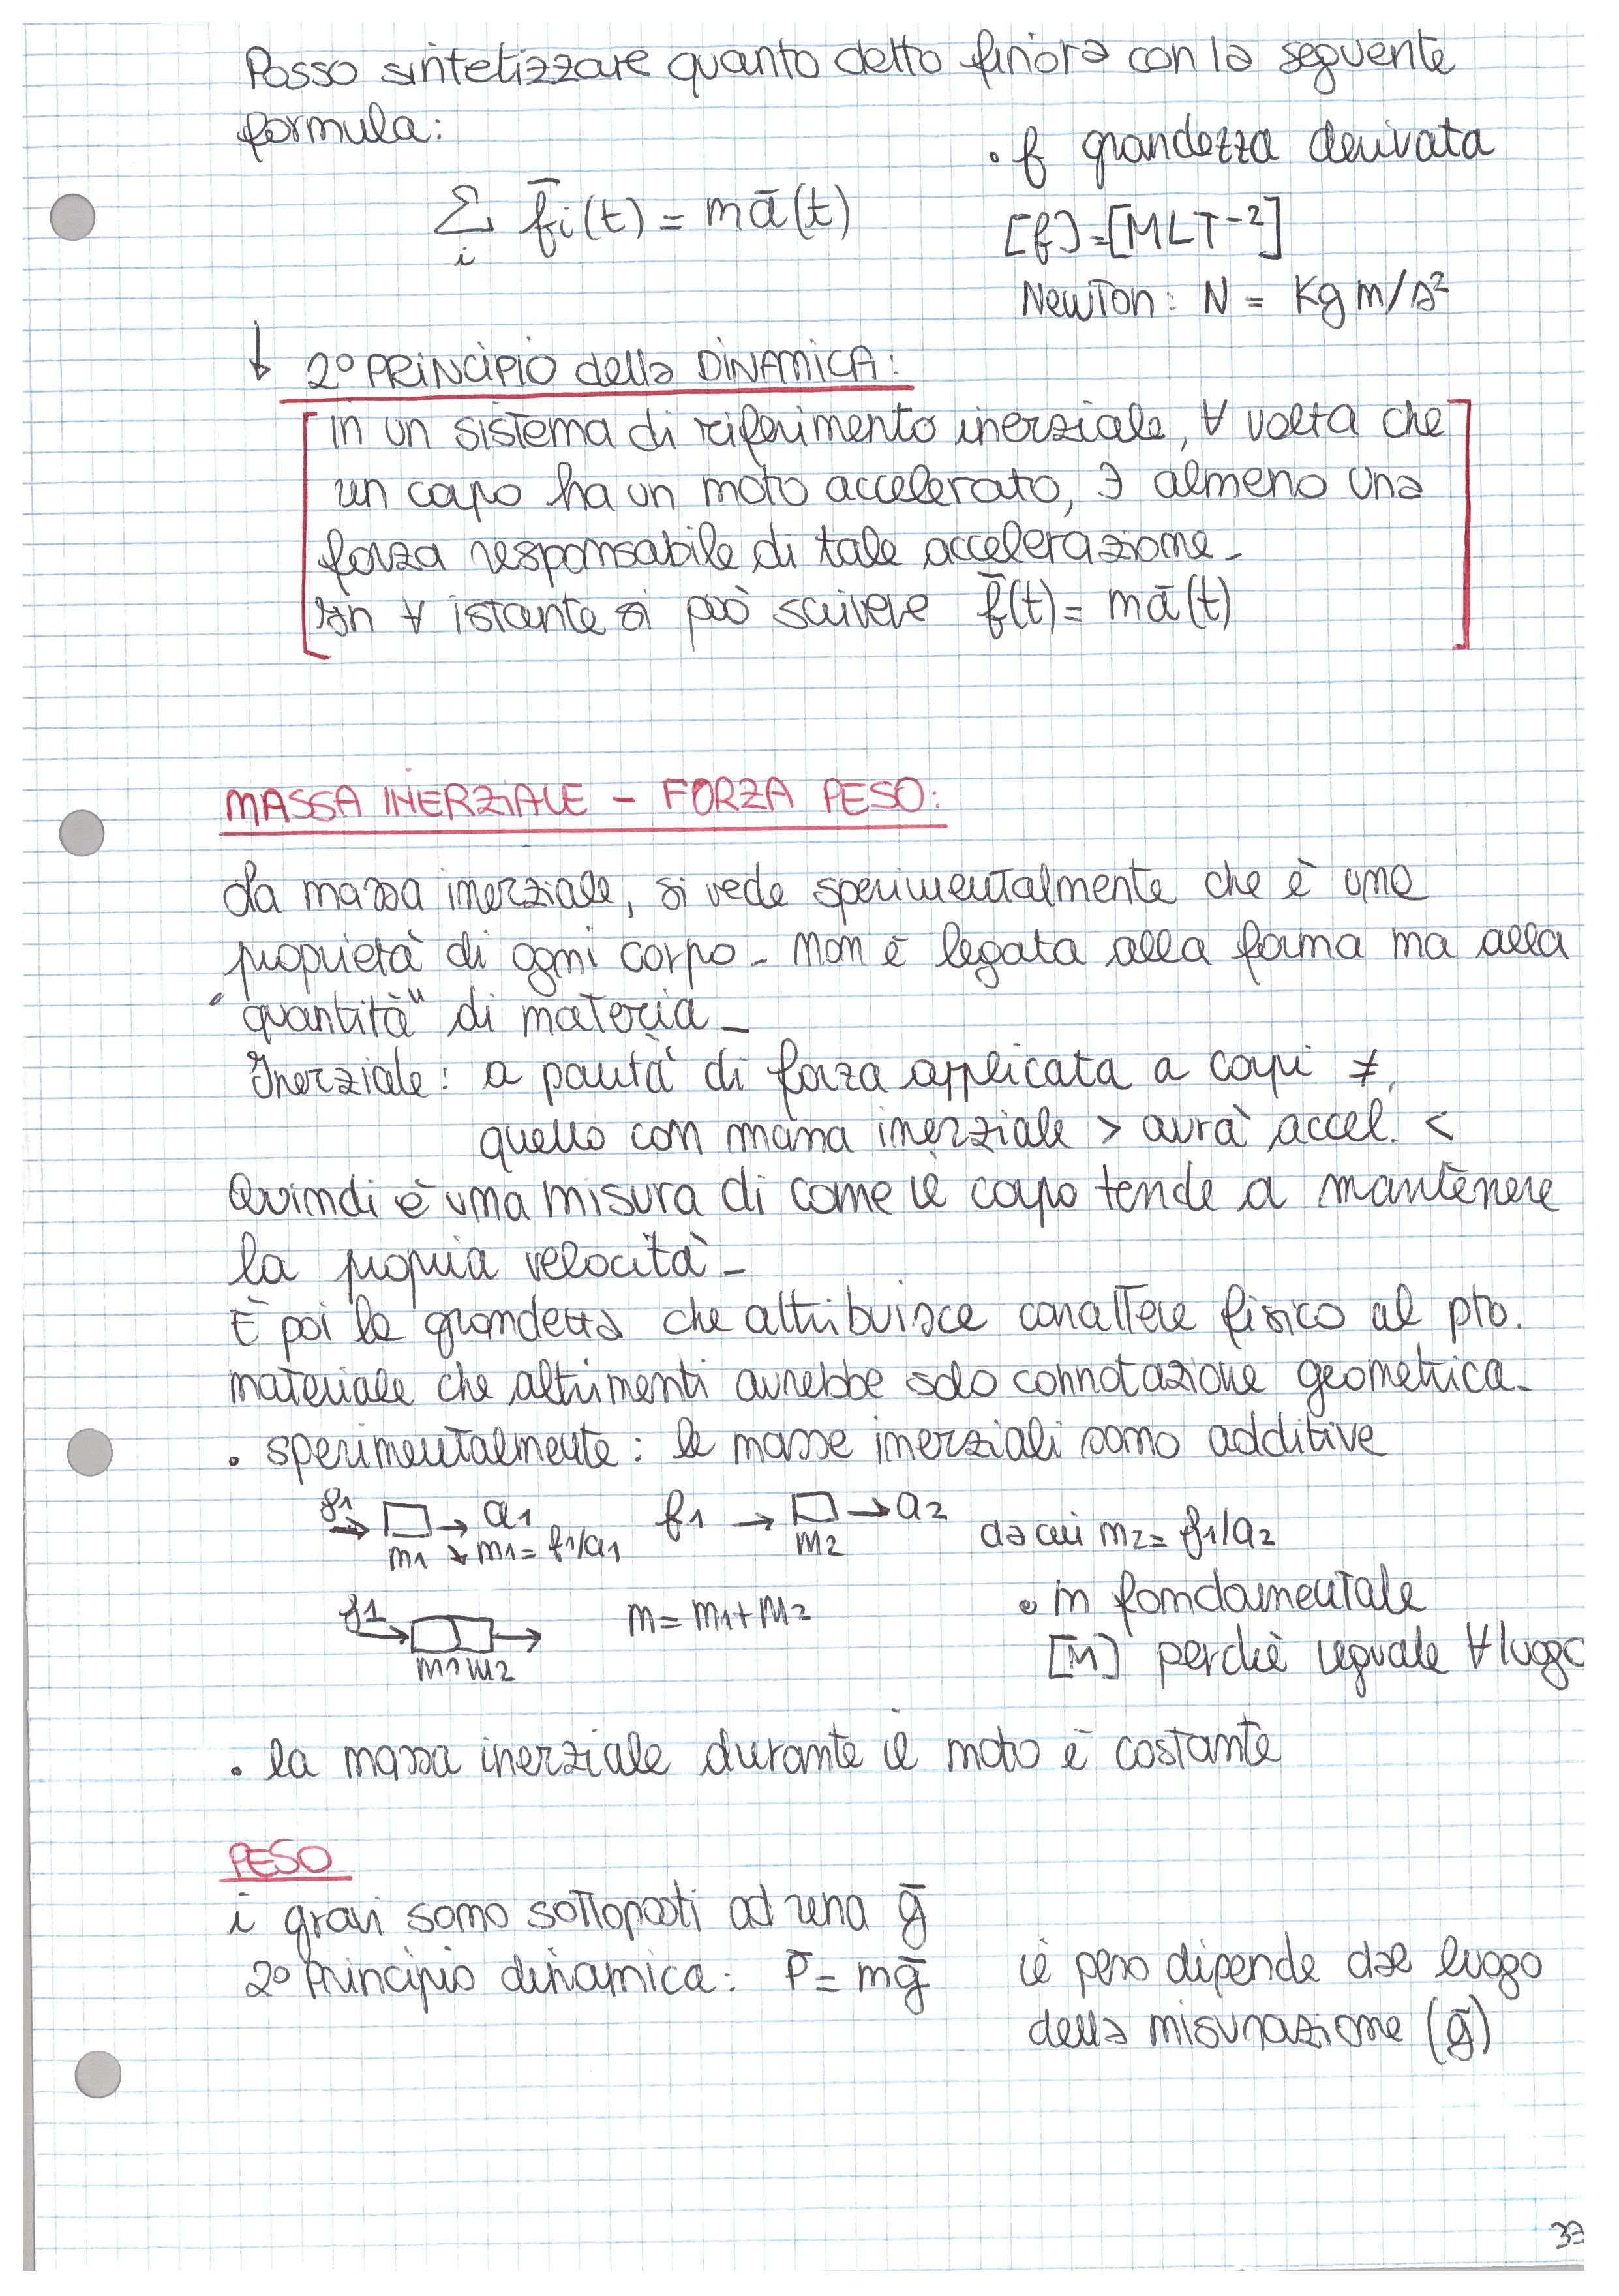 Posso sintetizzare quanto detto finora con la seguente
formula:
• f grandezza derivata
Σ f̄i(t) = mā(t)
i
[f]=[MLT⁻²]
Newton: N = Kg m/s²
↓ 2° PRINCIPIO della DINAMICA:
in un sistema di riferimento inerziale, ∀ volta che
un corpo ha un moto accelerato, ∃ almeno una
forza responsabile di tale accelerazione_
In ∀ istante si può scrivere f̄(t) = mā(t)
MASSA INERZIALE - FORZA PESO:
La massa inerziale, si vede sperimentalmente che è una
proprietà di ogni corpo_ Non è legata alla forma ma alla
"quantità" di materia_
Inerziale: a parità di forza applicata a corpi ≠,
quello con massa inerziale > avrà accel. <
Quindi è una misura di come il corpo tende a mantenere
la propria velocità_
È poi la grandezza che attribuisce carattere fisico al pto.
materiale che altrimenti avrebbe solo connotazione geometrica_
• sperimentalmente: le masse inerziali sono additive
f1 → □ → a1 f1 → □ → a2 da cui m2 = f1/a2
m1 ↘ m1 = f1/a1 m2
f1 m = m1+m2 • m fondamentale
m1 m2 [M] perchè uguale ∀ luogo
• la massa inerziale durante il moto è costante
PESO
i gravi sono sottoposti ad una ḡ
2° Principio dinamica: P̄ = mḡ il peso dipende dal luogo
della misurazione (ḡ)